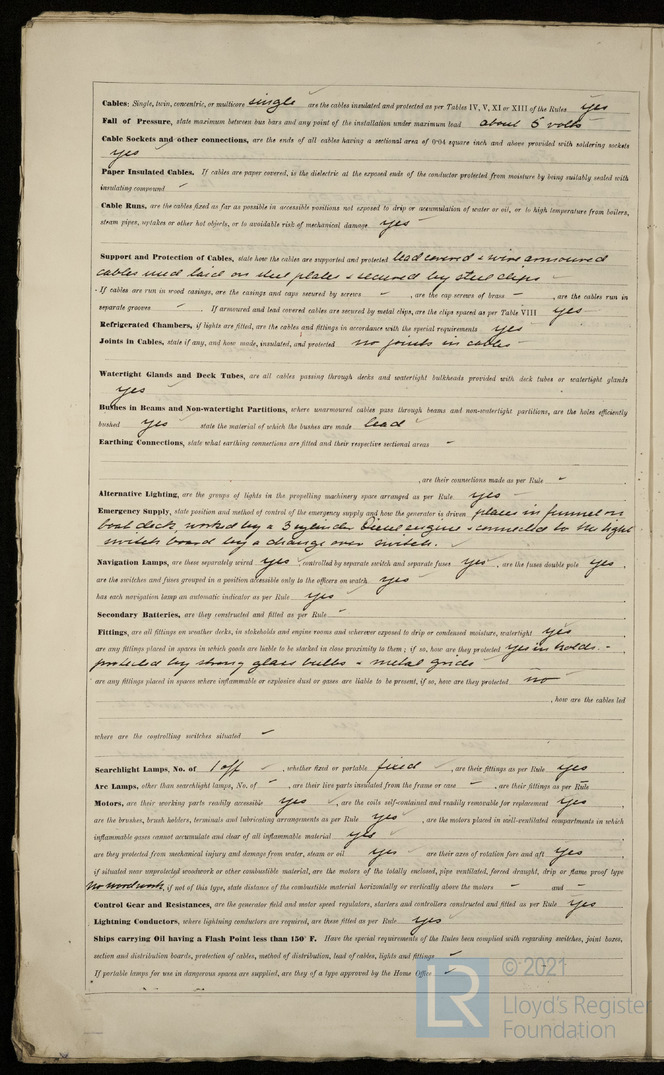 Cables: Single, twin, concentric, or multicore single are the cables insulated and protected as per Tables IV, V, XI or XIII of the Rules yes
Fall of Pressure, state maximum between bus bars and any point of the installation under maximum load about 5 volts
Cable Sockets and other connections, are the ends of all cables having a sectional area of 0·04 square inch and above provided with soldering sockets
yes
Paper Insulated Cables. If cables are paper covered, is the dielectric at the exposed ends of the conductor protected from moisture by being suitably sealed with
insulating compound -
Cable Runs, are the cables fixed as far as possible in accessible positions not exposed to drip or accumulation of water or oil, or to high temperature from boilers,
steam pipes, uptakes or other hot objects, or to avoidable risk of mechanical damage yes
Support and Protection of Cables, state how the cables are supported and protected lead covered & wire armoured
cables used laid on steel plates & secured by steel clips
If cables are run in wood casings, are the casings and caps secured by screws - , are the cap screws of brass - , are the cables run in
separate grooves - . If armoured and lead covered cables are secured by metal clips, are the clips spaced as per Table VIII yes
Refrigerated Chambers, if lights are fitted, are the cables and fittings in accordance with the special requirements yes
Joints in Cables, state if any, and how made, insulated, and protected no joints in cables
Watertight Glands and Deck Tubes, are all cables passing through decks and watertight bulkheads provided with deck tubes or watertight glands
yes
Bushes in Beams and Non-watertight Partitions, where unarmoured cables pass through beams and non-watertight partitions, are the holes efficiently
bushed yes state the material of which the bushes are made lead
Earthing Connections, state what earthing connections are fitted and their respective sectional areas -
, are their connections made as per Rule -
Alternative Lighting, are the groups of lights in the propelling machinery space arranged as per Rule yes
Emergency Supply, state position and method of control of the emergency supply and how the generator is driven places in funnel on
boat deck, worked by a 3 cylinder Diesel engine & connected to the light
switch board by a change over switch.
Navigation Lamps, are these separately wired yes , controlled by separate switch and separate fuses yes , are the fuses double pole yes ,
are the switches and fuses grouped in a position accessible only to the officers on watch yes
has each navigation lamp an automatic indicator as per Rule yes
Secondary Batteries, are they constructed and fitted as per Rule -
Fittings, are all fittings on weather decks, in stokeholds and engine rooms and wherever exposed to drip or condensed moisture, watertight yes
are any fittings placed in spaces in which goods are liable to be stacked in close proximity to them; if so, how are they protected yes in holds. -
protected by strong glass bulbs & metal grids
are any fittings placed in spaces where inflammable or explosive dust or gases are liable to be present, if so, how are they protected no
, how are the cables led
where are the controlling switches situated -
Searchlight Lamps, No. of 1 off , whether fixed or portable fixed , are their fittings as per Rule yes
Arc Lamps, other than searchlight lamps, No. of - , are their live parts insulated from the frame or case - , are their fittings as per Rule -
Motors, are their working parts readily accessible yes , are the coils self-contained and readily removable for replacement yes ,
are the brushes, brush holders, terminals and lubricating arrangements as per Rule yes , are the motors placed in well-ventilated compartments in which
inflammable gases cannot accumulate and clear of all inflammable material yes
are they protected from mechanical injury and damage from water, steam or oil yes are their axes of rotation fore and aft yes ,
if situated near unprotected woodwork or other combustible material, are the motors of the totally enclosed, pipe ventilated, forced draught, drip or flame proof type
no woodwork, if not of this type, state distance of the combustible material horizontally or vertically above the motors - and -
Control Gear and Resistances, are the generator field and motor speed regulators, starters and controllers constructed and fitted as per Rule yes
Lightning Conductors, where lightning conductors are required, are these fitted as per Rule yes
Ships carrying Oil having a Flash Point less than 150° F. Have the special requirements of the Rules been complied with regarding switches, joint boxes,
section and distribution boards, protection of cables, method of distribution, lead of cables, lights and fittings -
If portable lamps for use in dangerous spaces are supplied, are they of a type approved by the Home Office -
LR © 2021
Lloyd's Register
Foundation